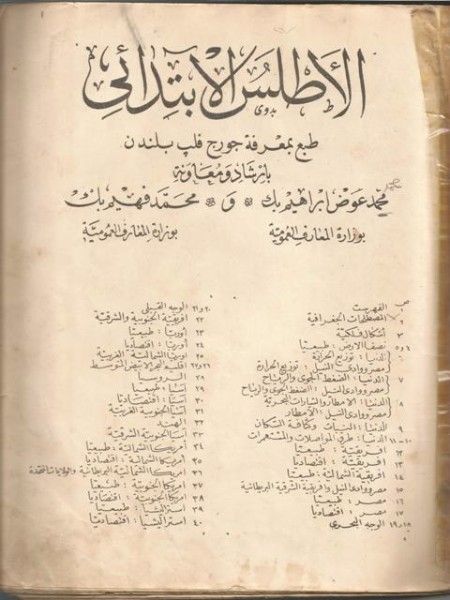 الأطلس الابتدائي
طبع بمعرفة جورج فلب بلندن
بإرشاد ومعاونة
محمد عوض ابراهيم بك و محمد فهيم بك
بوزارة المعارف العمومية بوزارة المعارف العمومية
ص الفهرست
٢ المصطلحات الجغرافية
٣ أشكال فلكية
٤ و ٥ نصفا الأرض : طبيعيا
٦ الدنيا : توزيع الحرارة
مصر ووادى النيل : توزيع الحرارة
٧ الدنيا : الضغط الجوى والرياح
مصر ووادى النيل : الضغط الجوى والرياح
٨ الدنيا : الأمطار والتيارات البحرية
مصر ووادى النيل : الأمطار
٩ الدنيا : النبات وكثافة السكان
١٠-١١ الدنيا : طرق المواصلات والمستعمرات
١٢ افريقية : طبيعيا
١٣ افريقية : اقتصاديا
١٤ افريقية الشمالية : طبيعيا
١٥ مصر ووادى النيل وافريقية الشرقية البريطانية
١٦ مصر : طبيعيا
١٧ مصر : اقتصاديا
١٨ و ١٩ الوجه البحرى
٢٠ و ٢١ الوجه القبلى
٢٢ افريقية الجنوبية والشرقية
٢٣ أوربا : طبيعيا
٢٤ أوربا : اقتصاديا
٢٥ أوربا الشمالية الغربية
٢٦ و ٢٧ اقليم البحر الأبيض المتوسط
٢٨ الروسيا
٢٩ آسيا : طبيعيا
٣٠ آسيا : اقتصاديا
٣١ آسيا الجنوبية الغربية
٣٢ الهند
٣٣ آسيا الجنوبية الشرقية
٣٤ أمريكا الشمالية : طبيعيا
٣٥ أمريكا الشمالية : اقتصاديا
٣٦ أمريكا الشمالية البريطانية والولايات المتحدة
٣٧ أمريكا الجنوبية : طبيعيا
٣٨ أمريكا الجنوبية : اقتصاديا
٣٩ استراليشيا : طبيعيا
٤٠ استراليشيا : اقتصاديا